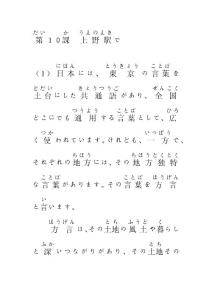 だい か うえのえき
第10課 上野駅で
にほん とうきょう ことば
(1)日本には、東京の言葉を
どだい きょうつうご ぜんこく
土台にした共通語があり、全国
つうよう ことば ひろ
どこにでも通用する言葉として、広
つか いっぽう
く使われています。けれども、一方で、
ちほう ちほう どくとく
それぞれの地方には、その地方独特
ことば ことば ほうげん
な言葉があります。その言葉を方言
い
と言います。
ほうげん とち ふうど く
方言は、その土地の風土や暮らし
ふか とち
と深いつながりがあり、その土地その